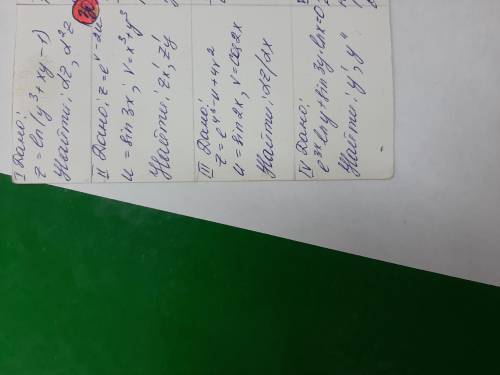 I Дано:
z = ln(y³ + xy - 1)
Найти: dz, d²z
II Дано: z = e^v-2u
u = sin 3x; v = x³ + y³
Найти: z'x, z'y
III Дано:
z = e^u³-u+4v²
u = sin 2x, v = cos 2x
Найти: dz/dx
IV Дано:
e^3x ln y + sin 3y · ln x = 0
Найти: y'; y"